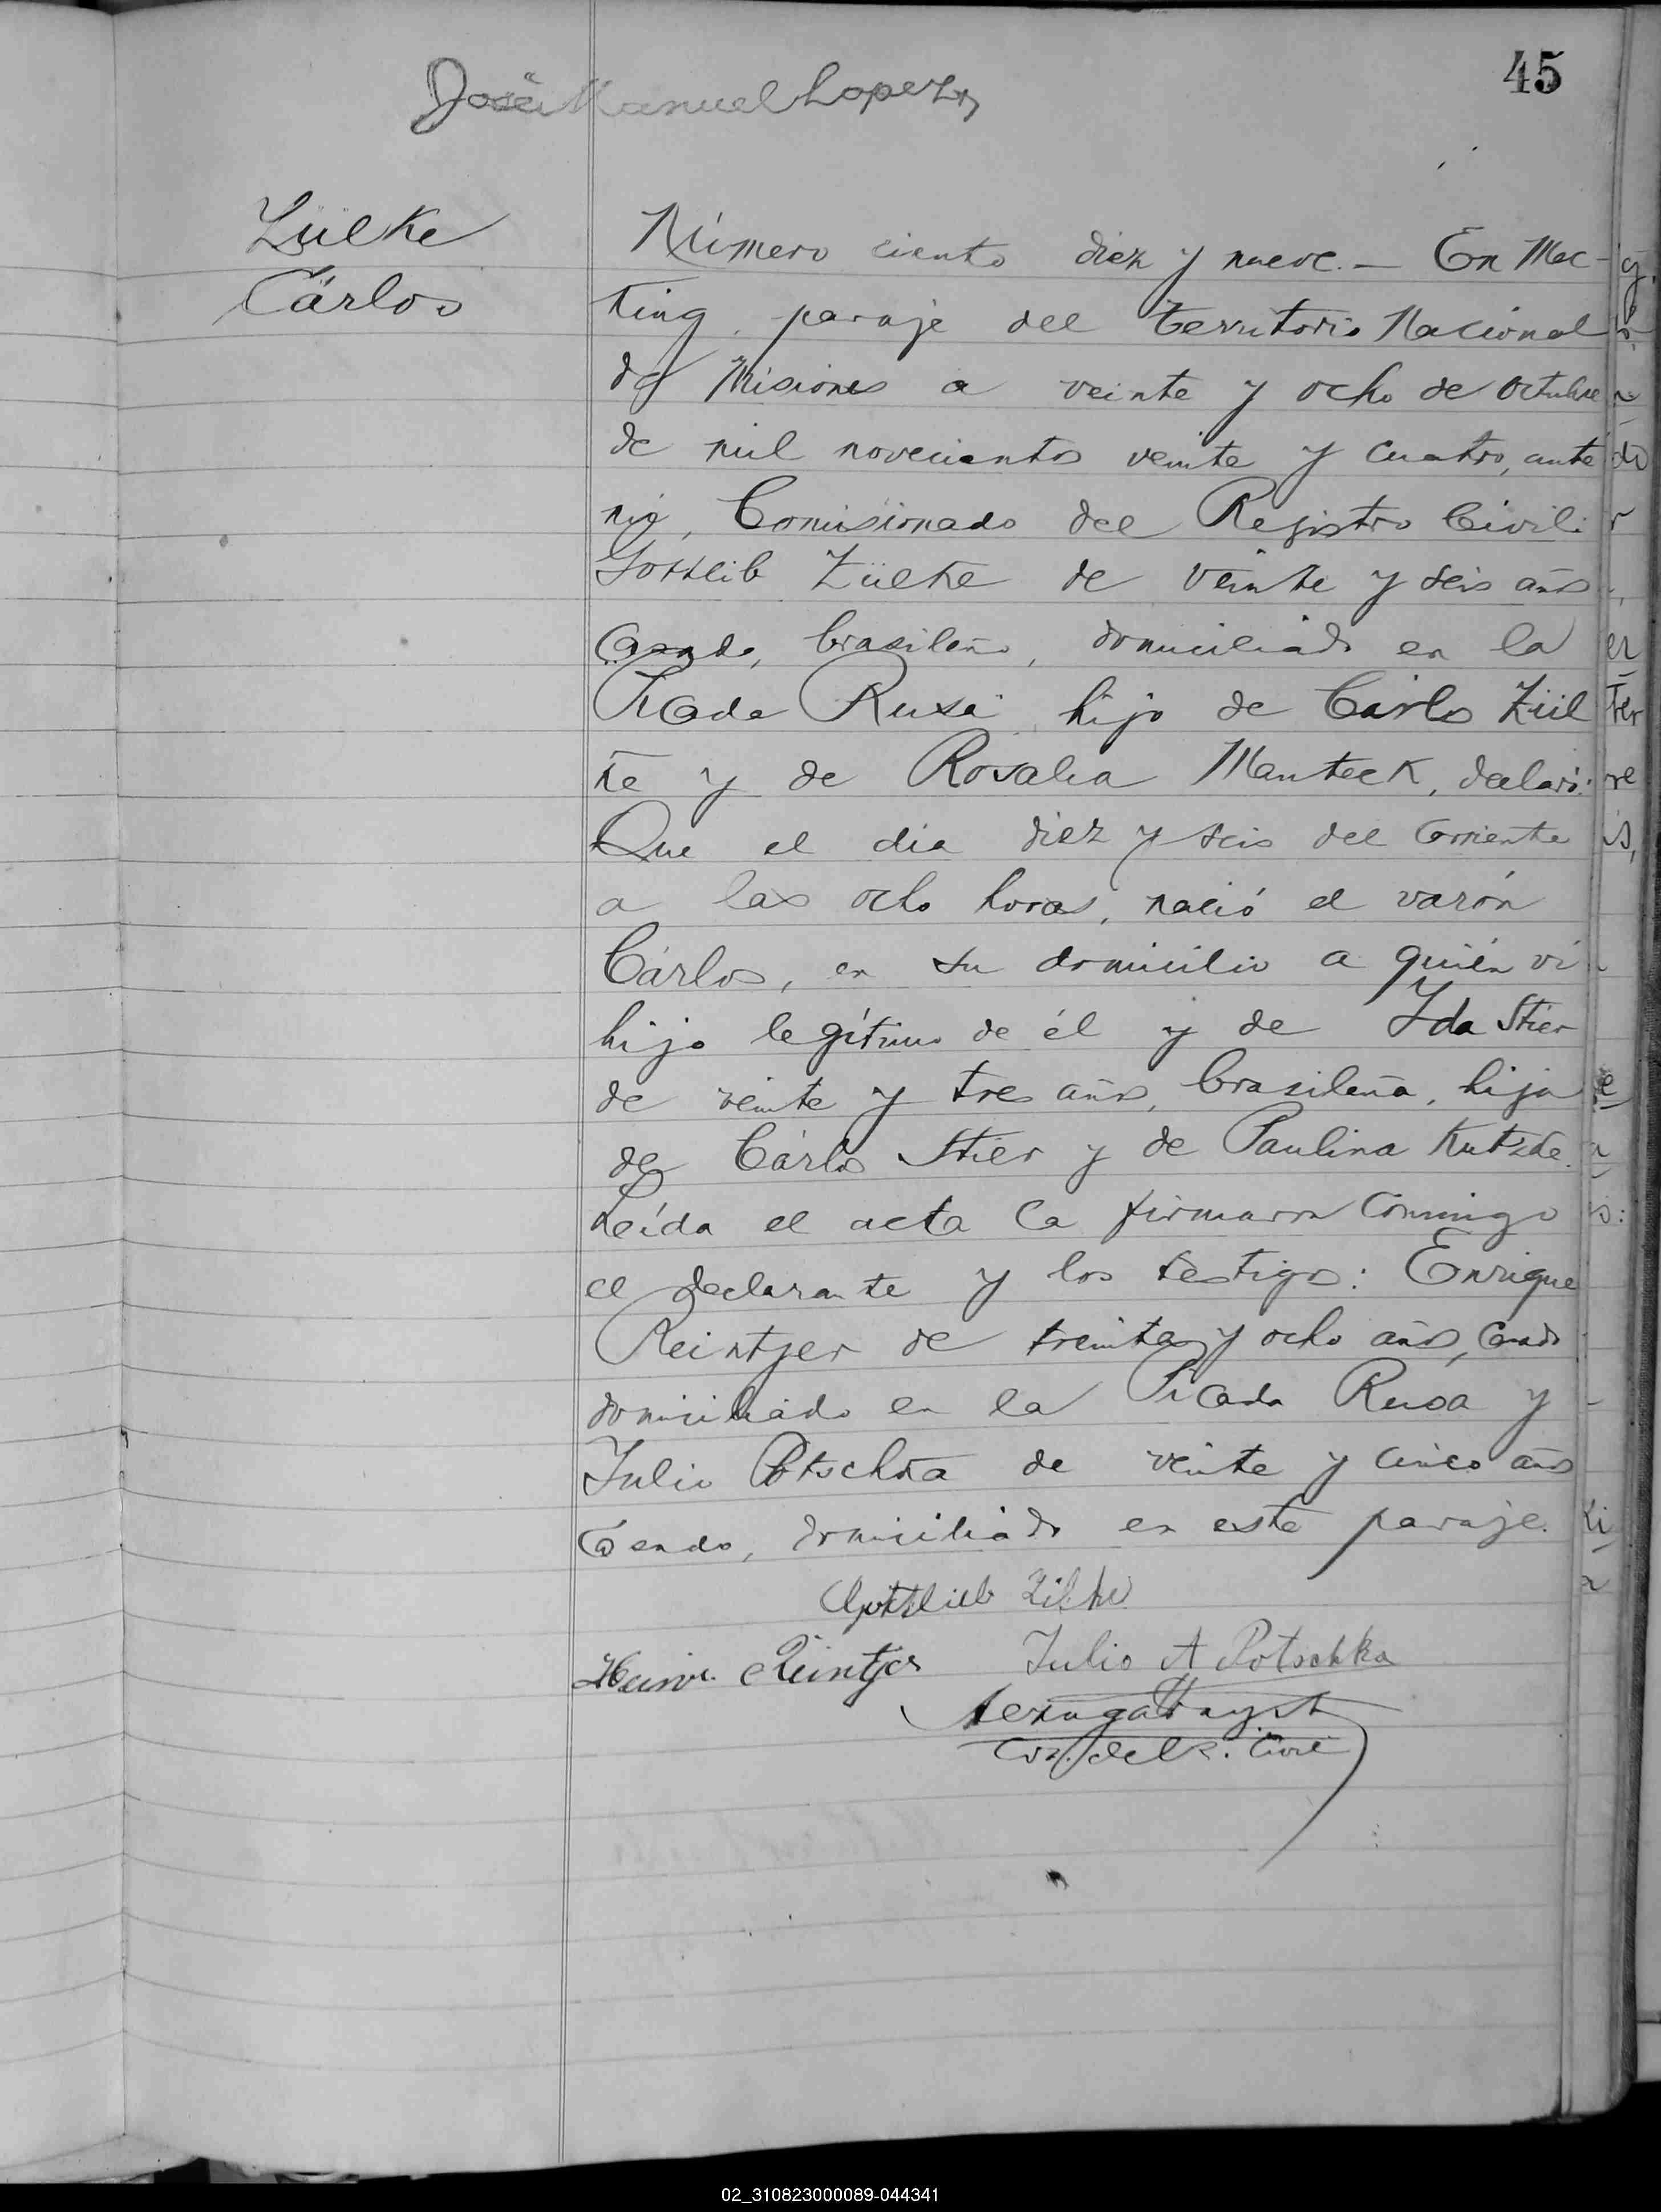 45
José Manuel Lopez
Zülke
Cárlos
Número ciento diez y nueve.— En Mec-
king, paraje del territorio Nacional
de Misiones a veinte y ocho de octubre
de mil novecientos veinte y cuatro, ante
mi, Comisionado del Registro Civil:
Gottlib Zülke de veinte y seis años
casado, brasileño, domiciliado en la
Picada Rusa hijo de Cárlos Zül
ke y de Rosalia Manteek, declaró:
Que el dia diez y seis del corriente
a las ocho horas, nació el varón
Cárlos, en su domicilio a quién vi
hijo legítimo de él y de Ida Stier
de veinte y tres años, brasileña, hija
de Cárlos Stier y de Paulina Kutzde.
Leída el acta la firmaron conmigo
el declarante y los testigos: Enrique
Reintjer de treinta y ocho años, casado
domiciliado en la Picada Rusa y
Julio Potschka de veinte y cinco años
casado, domiciliado en este paraje.
Gottlieb Zilke
Heinr. Reintjes Julio A Potschka
del R. Civil
02_310823000089-044341